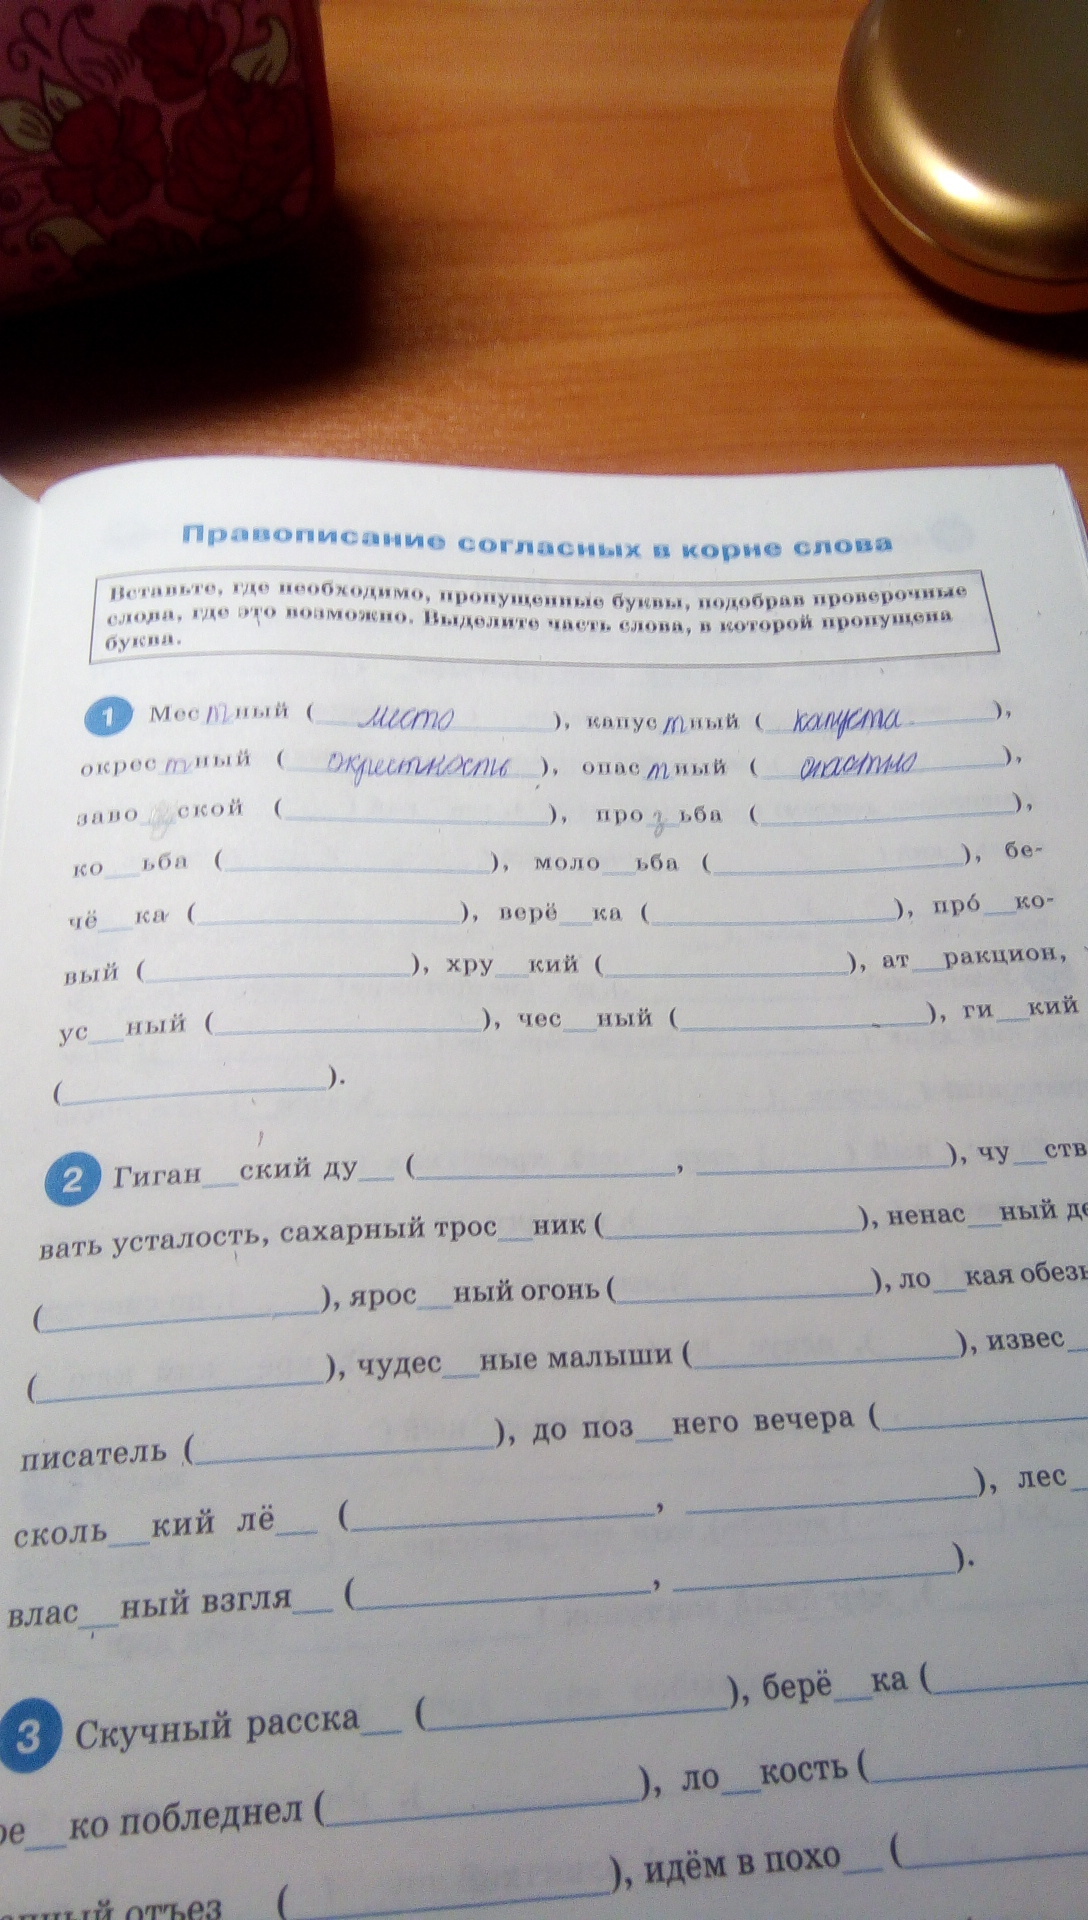 Правописание согласных в корне слова
Вставьте, где необходимо, пропущенные буквы, подобрав проверочные
слова, где это возможно. Выделите часть слова, в которой пропущена
буква.
1 Местный ( место ), капустный ( капуста ),
окрестный ( окрестность ), опастный ( опастно ),
заво__ской (__________), прозьба (__________),
ко__ьба (__________), моло__ьба (__________), бе-
чё__ка (__________), верё__ка (__________), про́__ко-
вый (__________), хру__кий (__________), ат__ракцион,
ус__ный (__________), чес__ный (__________), ги__кий
(__________).
2 Гиган__ский ду__ (__________, __________), чу__ств
вать усталость, сахарный трос__ник (__________), ненас__ный де
(__________), ярос__ный огонь (__________), ло__кая обезь
(__________), чудес__ные малыши (__________), извес__
писатель (__________), до поз__него вечера (__________
сколь__кий лё__ (__________, __________), лес__
влас__ный взгля__ (__________, __________).
3 Скучный расска__ (__________), берё__ка (__________
ре__ко побледнел (__________), ло__кость (__________
__________), идём в похо__ (__________
отъез__ (__________